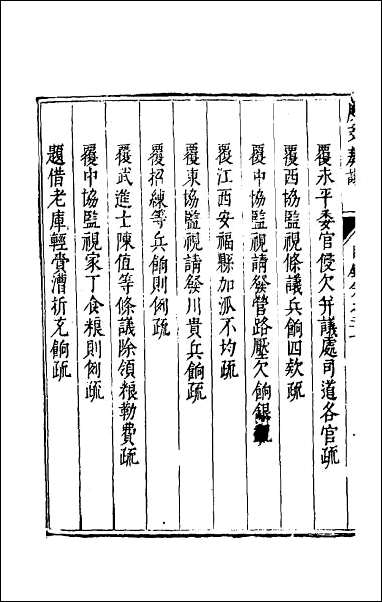 覆永平委官侵欠并議處司道各官疏
覆西協監視條議兵餉四欵疏
覆中協監視請發管路壓欠餉銀疏
覆江西安福縣加派不均疏
覆東協監視請發川貴兵餉疏
覆招練等兵餉則例疏
覆武進士陳值等條議除領粮勒費疏
覆中協監視家丁食粮則例疏
題借老庫輕賫漕折充餉疏